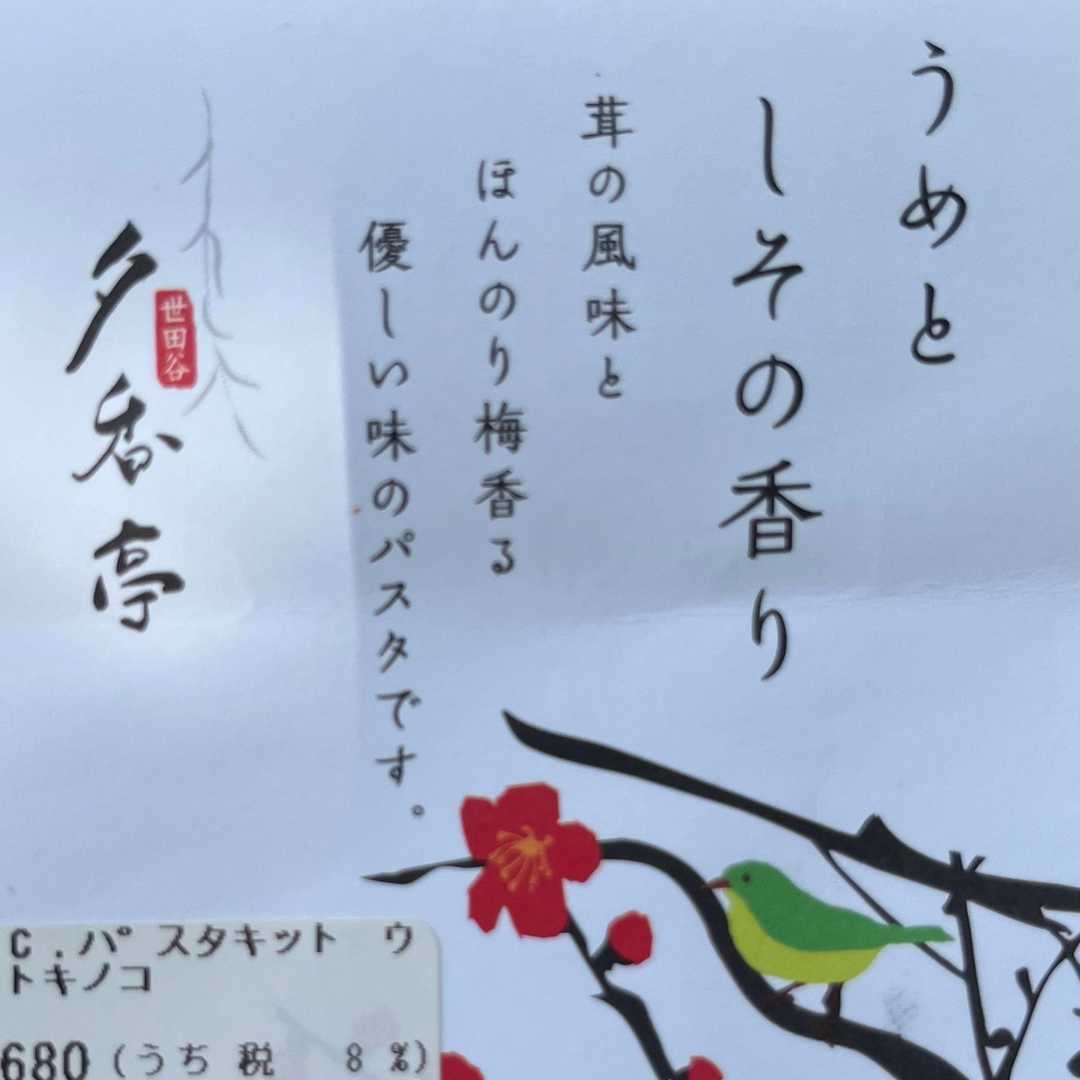 うめと
しその香り
茸の風味と
ほんのり梅香る
優しい味のパスタです。
世田谷
夕香亭
C.パスタキット ウ
トキノコ
680(うち税 8%)